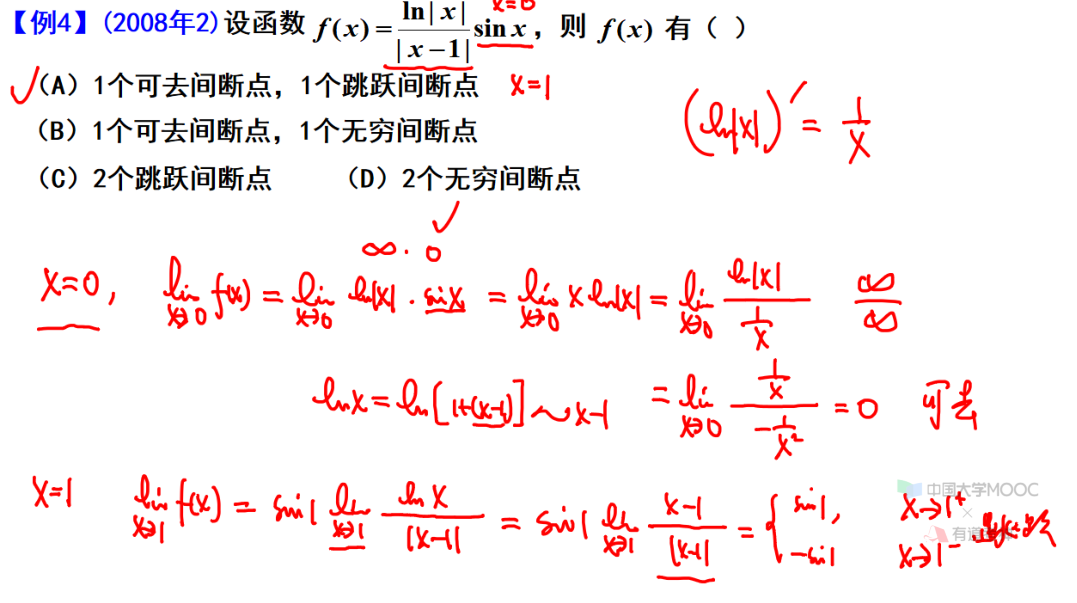 【例4】(2008年2) 设函数 f(x) = ln|x| / |x−1| sin x, 则 f(x) 有 ( )
x=0
✓ (A) 1个可去间断点, 1个跳跃间断点 x=1
(B) 1个可去间断点, 1个无穷间断点
(C) 2个跳跃间断点 (D) 2个无穷间断点
(ln|x|)′ = 1/x
∞·0 ✓
x=0, lim_{x→0} f(x) = lim_{x→0} ln|x|·sin x = lim_{x→0} x ln|x| = lim_{x→0} ln|x| / (1/x) ∞/∞
ln x = ln[1+(x−1)] ~ x−1 = lim_{x→0} (1/x) / (−1/x²) = 0 可去
x=1 lim_{x→1} f(x) = sin1 lim_{x→1} ln x / |x−1| = sin1 lim_{x→1} (x−1) / |x−1| = { sin1, x→1⁺
−sin1 x→1⁻
中国大学MOOC
×
有道